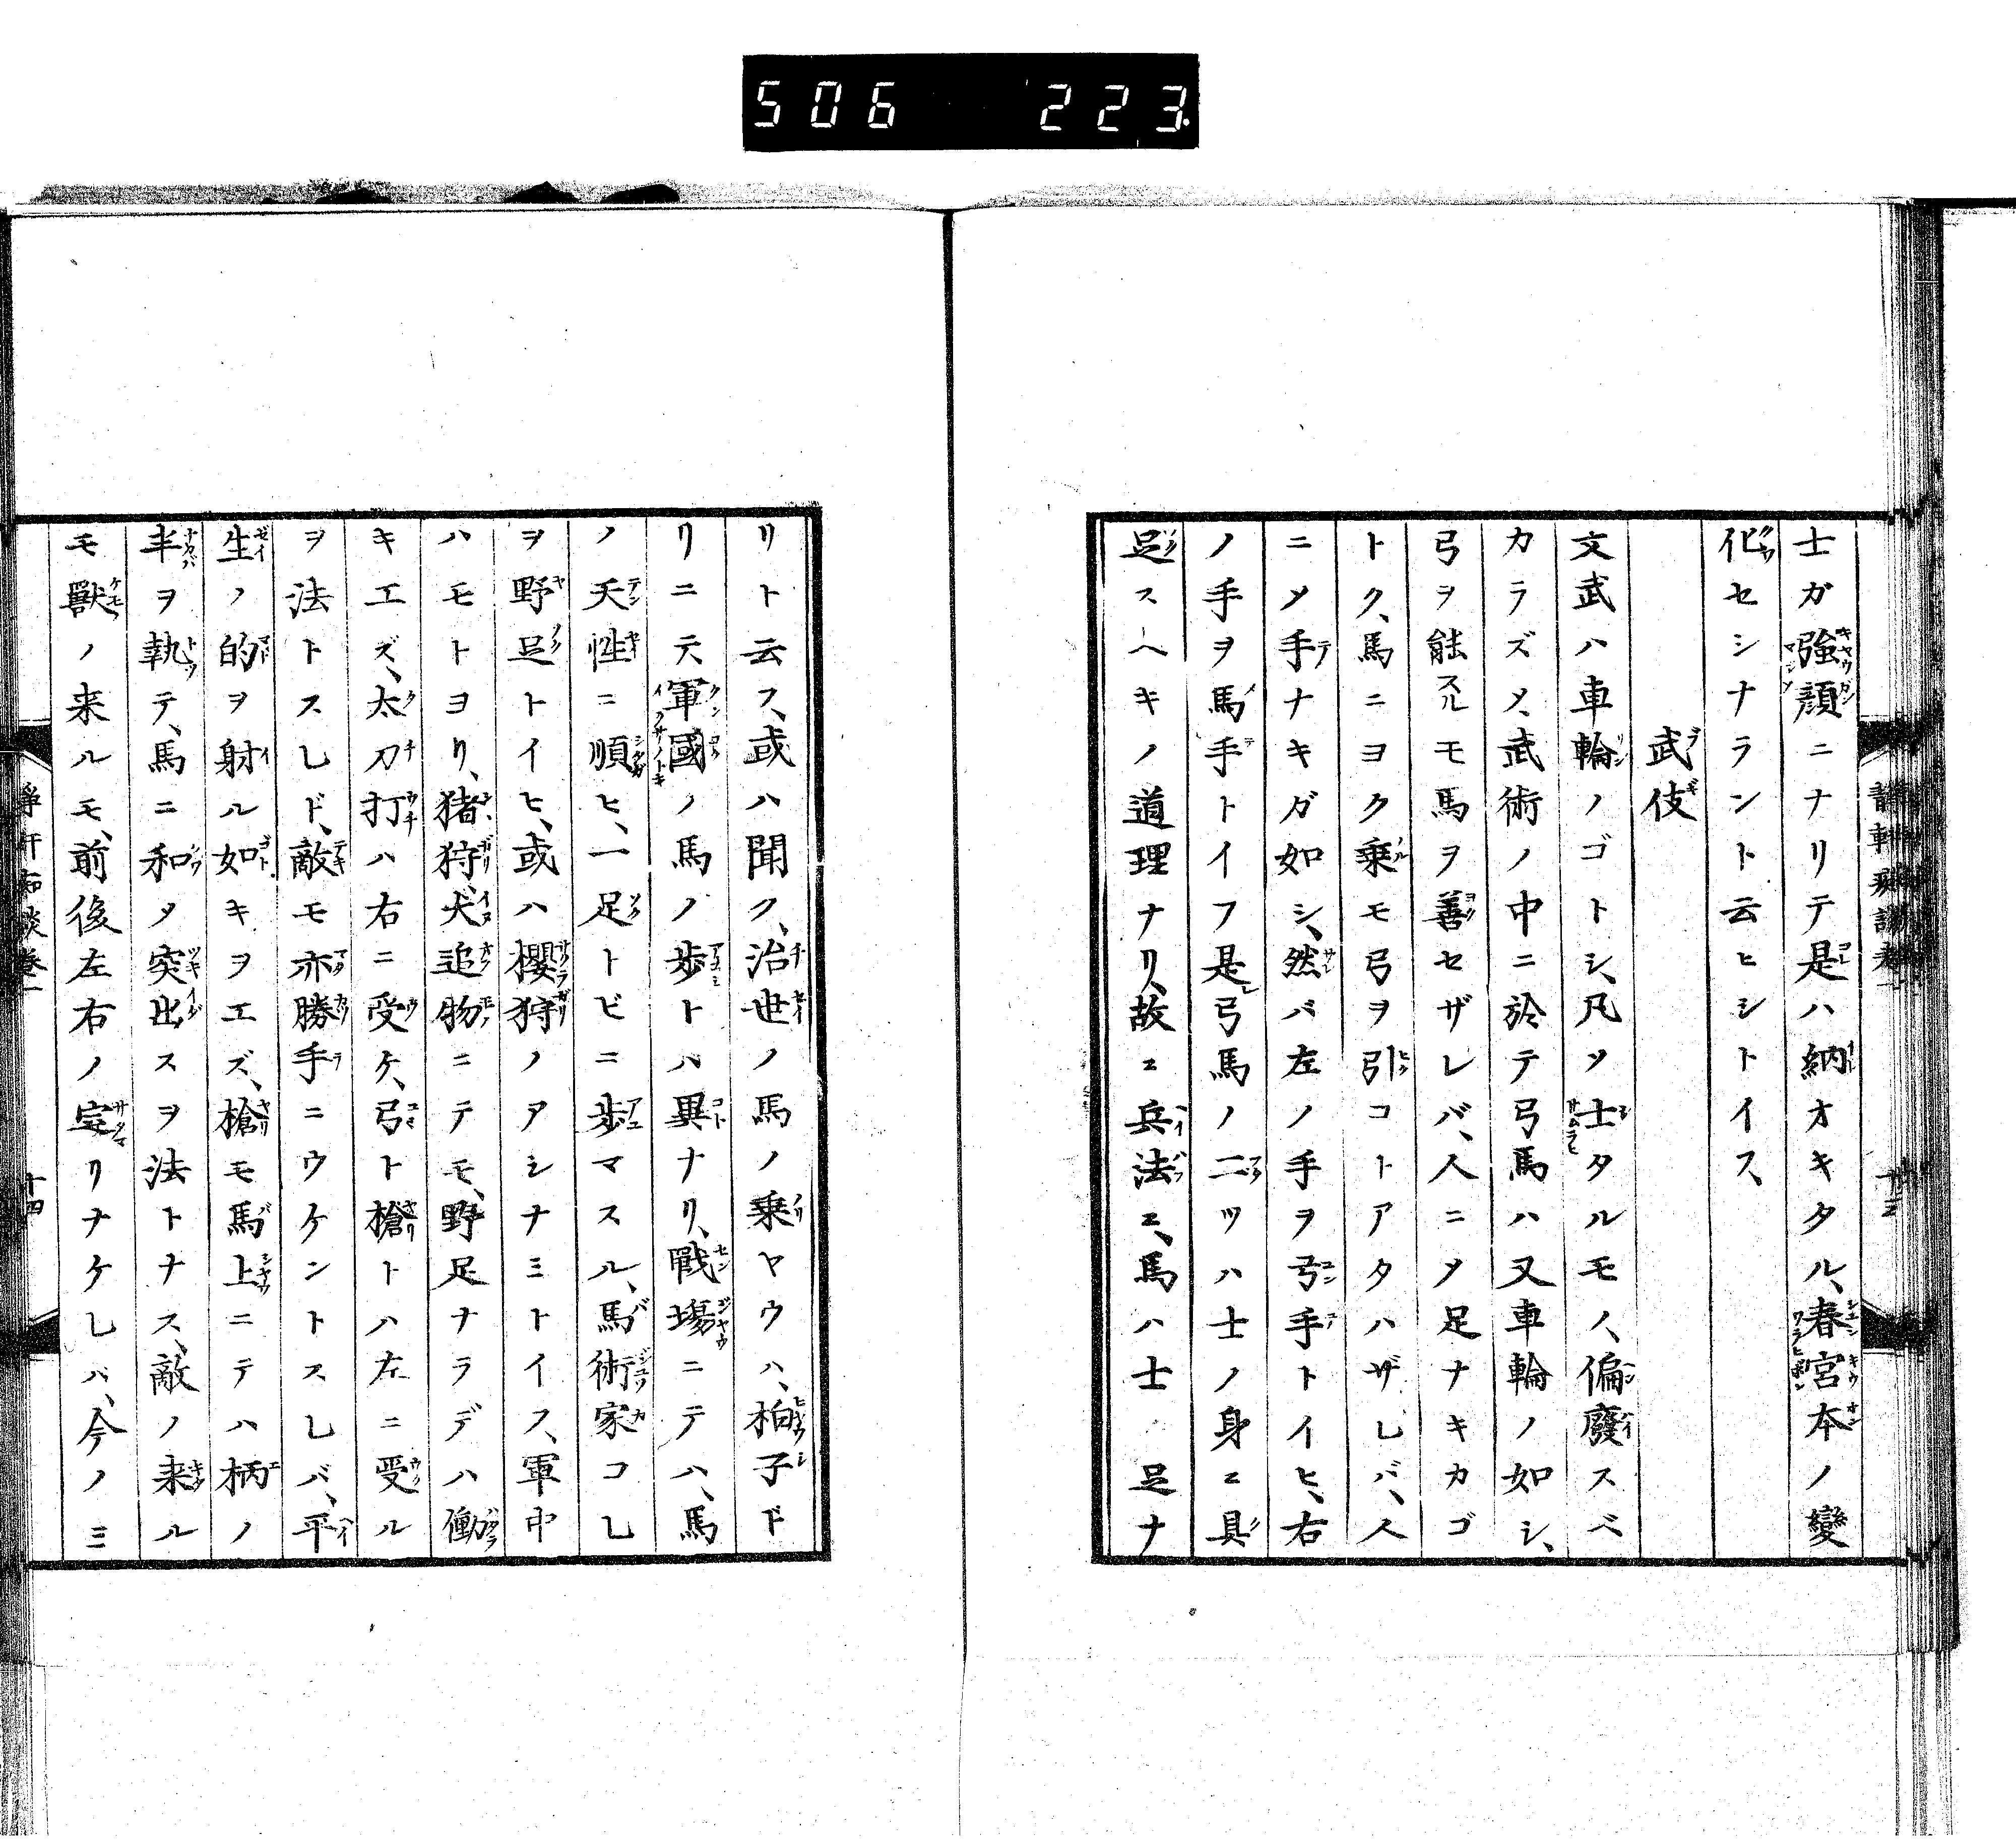 506 223
士ガ強顔ニナリテ是ハ納オキタル、春宮本ノ變
化セシナラント云ヒシトイス、
武伎
文武ハ車輪ノゴトシ、凡ソ士タルモノ、偏廢スベ
カラズメ、武術ノ中ニ於テ弓馬ハ又車輪ノ如シ、
弓ヲ能スルモ馬ヲ善セザレバ、人ニメ足ナキカゴ
トク、馬ニヨク乗モ弓ヲ引コトアタハザレバ、人
ニメ手ナキガ如シ、然バ左ノ手ヲ弓手トイヒ、右
ノ手ヲ馬手トイフ是弓馬ノ二ツハ士ノ身ニ具
足スヘキノ道理ナリ、故ニ兵法ニ、馬ハ士足ナ
リト云ス、或ハ聞ク、治世ノ馬ノ乗ヤウハ、拍子ド
リニテ軍國ノ馬ノ歩トハ異ナリ、戰場ニテハ、馬
ノ天性ニ順ヒ、一足トビニ歩マスル、馬術家コレ
ヲ野足トイヒ、或ハ櫻狩ノアシナミトイス、軍中
ハモトヨリ、猪狩、犬追物ニテモ、野足ナラデハ働
キエズ、太刀打ハ右ニ受ケ、弓ト槍トハ左ニ受ル
ヲ法トスレド、敵モ亦勝手ニウケントスレバ、平
生ノ的ヲ射ル如キヲエズ、槍モ馬上ニテハ柄ノ
半ヲ執テ、馬ニ和メ突出スヲ法トナス、敵ノ来ル
モ獸ノ来ルモ、前後左右ノ定リナケレバ、今ノミ
十四